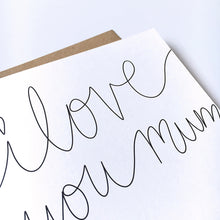 i love
you mum